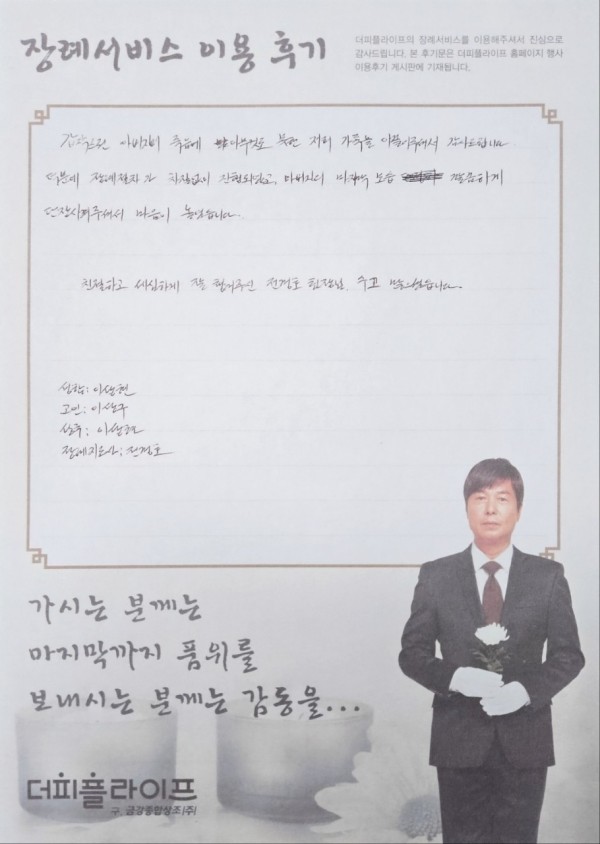 장례서비스 이용 후기
더피플라이프의 장례서비스를 이용해주셔서 진심으로
감사드립니다. 본 후기문은 더피플라이프 홈페이지 행사
이용후기 게시판에 기재됩니다.
갑작스런 아버지의 죽음에 저희 가족을 이끌어주셔서 감사드립니다.
덕분에 장례절차가 차질없이 진행되었고, 아버지의 마지막 모습 깔끔하게
단장시켜주셔서 마음이 놓였습니다.
친절하고 세심하게 잘 챙겨주신 전경호 팀장님, 수고 많으셨습니다.
성함: 이상현
고인: 이상구
상주: 이상현
장례지도사: 전경호
가시는 분께는
마지막까지 품위를
보내시는 분께는 감동을...
더피플라이프
구. 금강종합상조(주)